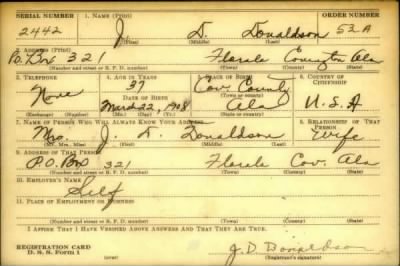 SERIAL NUMBER 1. NAME (Print) ORDER NUMBER
2442 J. D. Donaldson 52A
(First) (Middle) (Last)
2. ADDRESS (Print)
P.O. Box 321 Florala Covington Ala
(Number and street or R. F. D. number) (Town) (County) (State)
3. TELEPHONE 4. AGE IN YEARS 5. PLACE OF BIRTH 6. COUNTRY OF CITIZENSHIP
None 37 Cov. County
DATE OF BIRTH (Town or county)
March 22, 1908 Ala U.S.A
(Exchange) (Number) (Mo.) (Day) (Yr.) (State or country)
7. NAME OF PERSON WHO WILL ALWAYS KNOW YOUR ADDRESS 8. RELATIONSHIP OF THAT PERSON
Mrs. J. D. Donaldson Wife
(Mr., Mrs., Miss) (First) (Middle) (Last)
9. ADDRESS OF THAT PERSON
P.O. Box 321 Florala Cov. Ala
(Number and street or R. F. D. number) (Town) (County) (State)
10. EMPLOYER'S NAME
Self
11. PLACE OF EMPLOYMENT OR BUSINESS
(Number and street or R. F. D. number) (Town) (County) (State)
I AFFIRM THAT I HAVE VERIFIED ABOVE ANSWERS AND THAT THEY ARE TRUE.
REGISTRATION CARD
D. S. S. Form 1 J. D. Donaldson
(Registrant's signature)